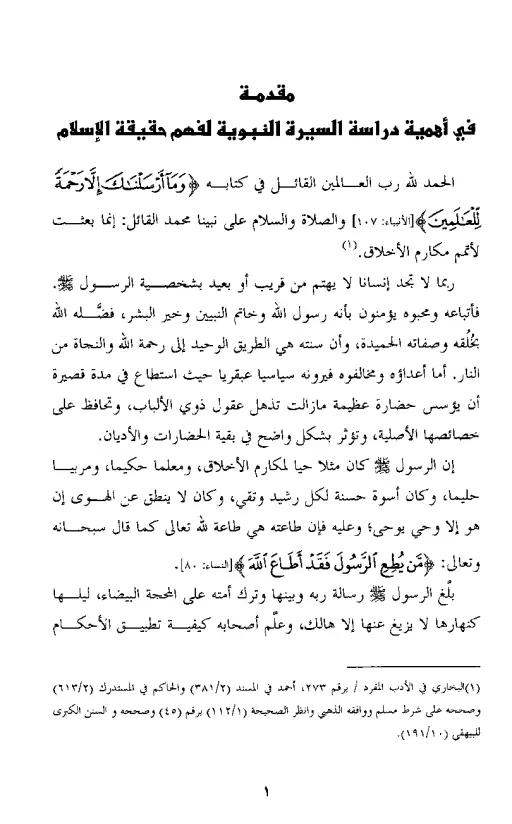 مقدمة
في أهمية دراسة السيرة النبوية لفهم حقيقة الإسلام
الحمد لله رب العالمين القائل في كتابه ﴿وَمَا أَرْسَلْنَاكَ إِلَّا رَحْمَةً
لِّلْعَالَمِينَ﴾ [الأنبياء: ١٠٧] والصلاة والسلام على نبينا محمد القائل: إنما بعثت
لأتمم مكارم الأخلاق.(١)
ربما لا تجد إنسانا لا يهتم من قريب أو بعيد بشخصية الرسول ﷺ.
فأتباعه ومحبوه يؤمنون بأنه رسول الله وخاتم النبيين وخير البشر، فضَّله الله
بخُلُقه وصفاته الحميدة، وأن سنته هي الطريق الوحيد إلى رحمة الله والنجاة من
النار. أما أعداؤه ومخالفوه فيرونه سياسيا عبقريا حيث استطاع في مدة قصيرة
أن يؤسس حضارة عظيمة مازالت تذهل عقول ذوي الألباب، وتحافظ على
خصائصها الأصلية، وتؤثر بشكل واضح في بقية الحضارات والأديان.
إن الرسول ﷺ كان مثلا حيا لمكارم الأخلاق، ومعلما حكيما، ومربيا
حليما، وكان أسوة حسنة لكل رشيد وتقي، وكان لا ينطق عن الهوى إن
هو إلا وحي يوحى؛ وعليه فإن طاعته هي طاعة لله تعالى كما قال سبحانه
وتعالى: ﴿مَّن يُطِعِ الرَّسُولَ فَقَدْ أَطَاعَ اللَّهَ﴾ [النساء: ٨٠].
بلّغ الرسول ﷺ رسالة ربه وبينها وترك أمته على المحجة البيضاء، ليلها
كنهارها لا يزيغ عنها إلا هالك، وعلّم أصحابه كيفية تطبيق الأحكام
(١) البخاري في الأدب المفرد / برقم ٢٧٣، أحمد في المسند (٣٨١/٢) والحاكم في المستدرك (٦١٣/٢)
وصححه على شرط مسلم ووافقه الذهبي وانظر الصحيحة (١١٢/١) برقم (٤٥) وصححه و السنن الكبرى
للبيهقي (١٩١/١٠).
١